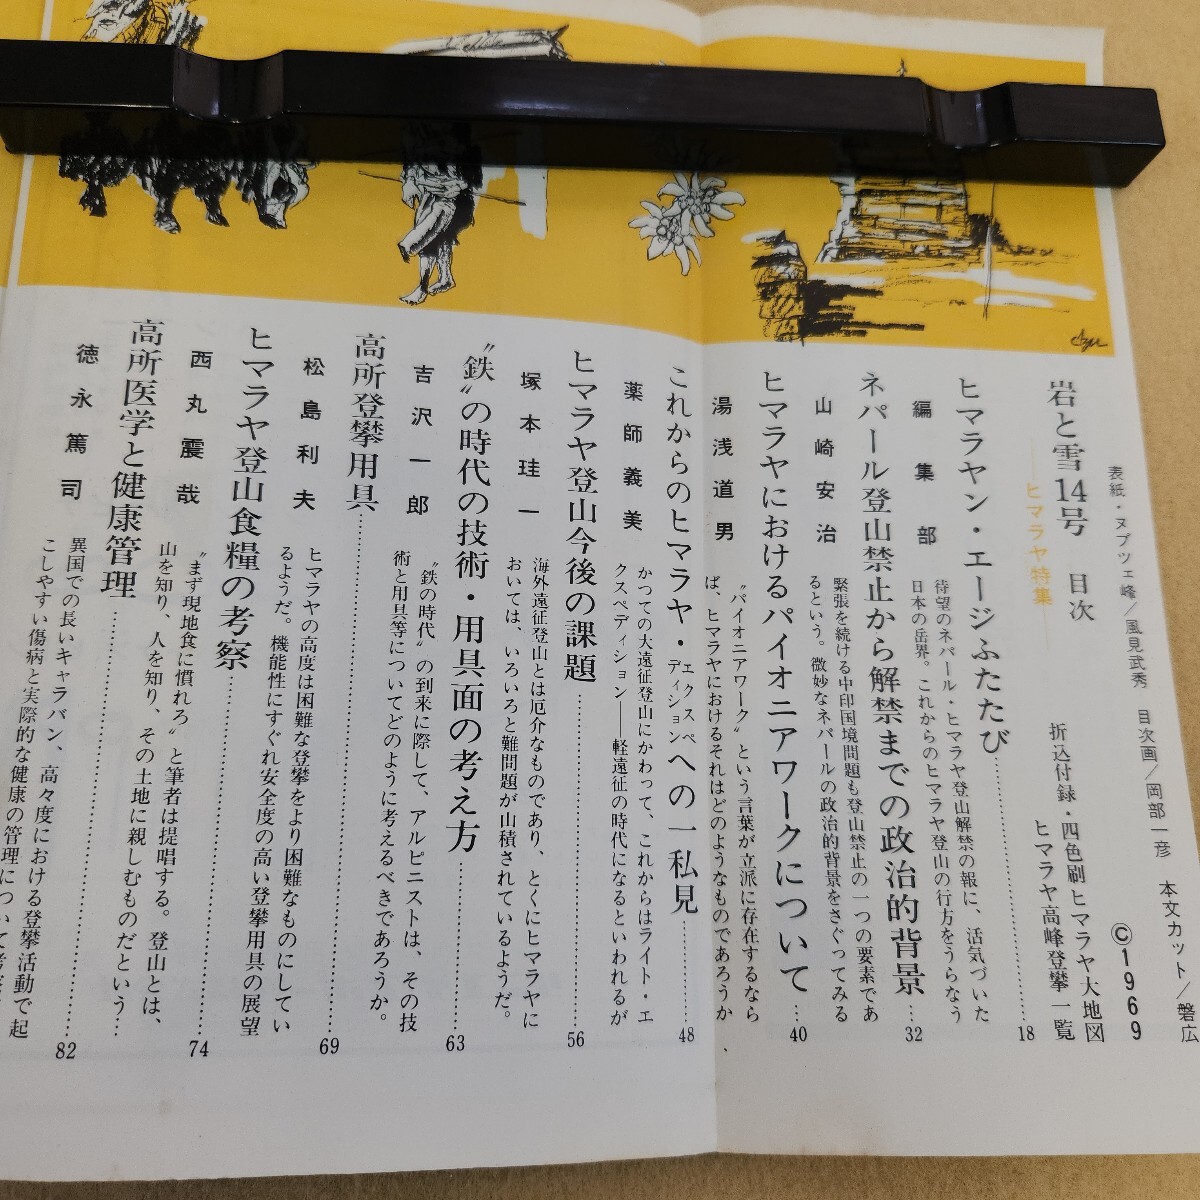 岩と雪14号　目次
――ヒマラヤ特集――
表紙・ヌプツェ峰／風見武秀　目次画／岡部一彦　本文カット／磐広
©1969
折込付録・四色刷ヒマラヤ大地図
ヒマラヤ高峰登攀一覧
ヒマラヤン・エージふたたび……18
編集部
待望のネパール・ヒマラヤ登山解禁の報に、活気づいた
日本の岳界。これからのヒマラヤ登山の行方をうらなう
ネパール登山禁止から解禁までの政治的背景…32
山崎安治
緊張を続ける中印国境問題も登山禁止の一つの要素であ
るという。微妙なネパールの政治的背景をさぐってみる
ヒマラヤにおけるパイオニアワークについて…40
湯浅道男
〝パイオニアワーク〟という言葉が立派に存在するなら
ば、ヒマラヤにおけるそれはどのようなものであろうか
これからのヒマラヤ・エクスペディションへの一私見……48
薬師義美
かつての大遠征登山にかわって、これからはライト・エ
クスペディション――軽遠征の時代になるといわれるが
ヒマラヤ登山今後の課題……56
塚本珪一
海外遠征登山とは厄介なものであり、とくにヒマラヤに
おいては、いろいろと難問題が山積されているようだ。
〝鉄〟の時代の技術・用具面の考え方……63
吉沢一郎
〝鉄の時代〟の到来に際して、アルピニストは、その技
術と用具等についてどのように考えるべきであろうか。
高所登攀用具……69
松島利夫
ヒマラヤの高度は困難な登攀をより困難なものにしてい
るようだ。機能性にすぐれ安全度の高い登攀用具の展望
ヒマラヤ登山食糧の考察……74
西丸震哉
〝まず現地食に慣れろ〟と筆者は提唱する。登山とは、
山を知り、人を知り、その土地に親しむものだという…
高所医学と健康管理……82
徳永篤司
異国での長いキャラバン、高々度における登攀活動で起
こしやすい傷病と実際的な健康の管理について